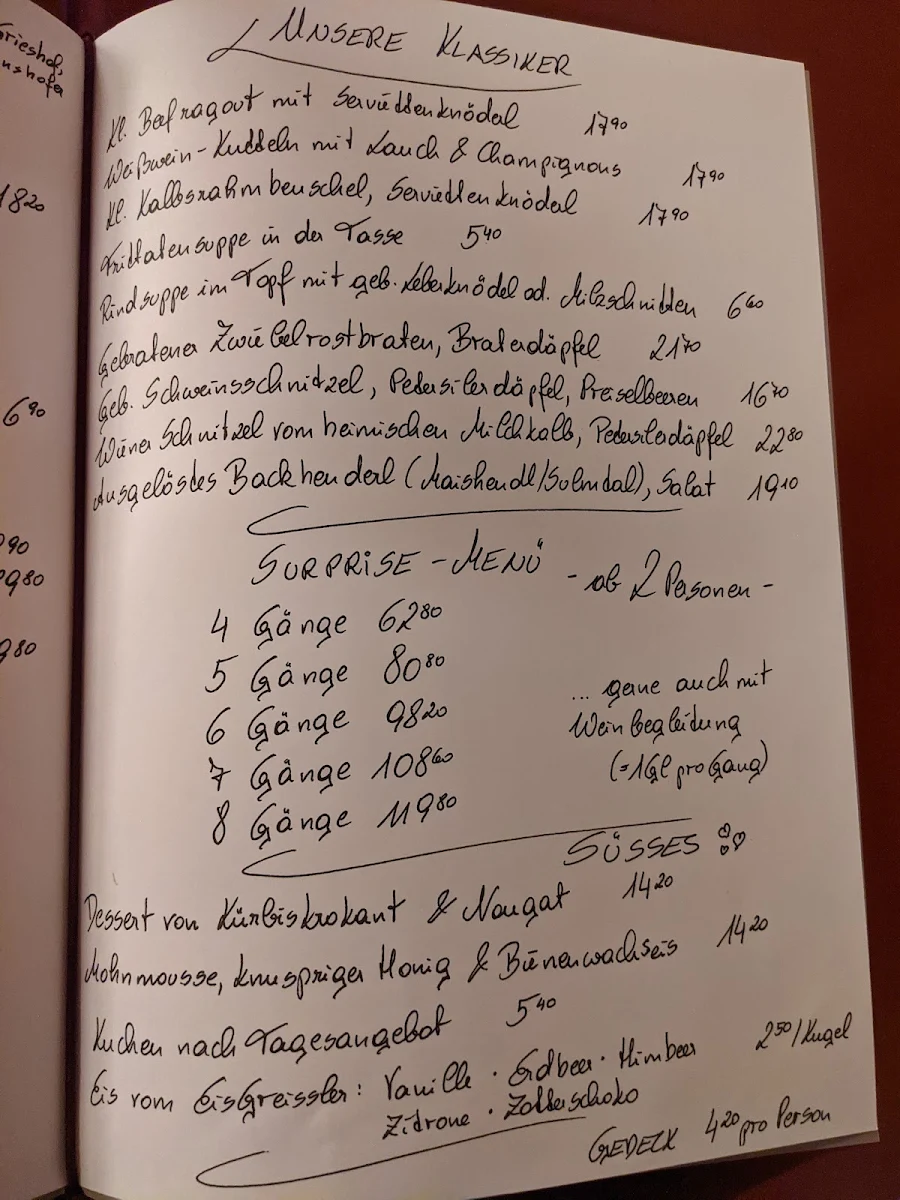 Grieshof,
nshofer
1820
690
990
980
980
UNSERE KLASSIKER
Kl. Beefragout mit Serviettenknödel 1790
Weißwein-Kutteln mit Lauch & Champignons 1790
Kl. Kalbsrahmbeuschel, Serviettenknödel 1790
Frittatensuppe in der Tasse 540
Rindsuppe im Topf mit geb. Leberknödel od. Milzschnitten 660
Gebratener Zwiebelrostbraten, Braterdäpfel 2170
Geb. Schweinsschnitzel, Petersilerdäpfel, Preiselbeeren 1670
Wiener Schnitzel vom heimischen Milchkalb, Petersilerdäpfel 2280
Ausgelöstes Backhenderl (Maishendl/Sulmtal), Salat 1910
SURPRISE-MENÜ - ab 2 Personen -
4 Gänge 6280
5 Gänge 8080
6 Gänge 9820
7 Gänge 10860
8 Gänge 11980
... gerne auch mit
Weinbegleitung
(=1Gl pro Gang)
SÜSSES
Dessert von Kürbiskrokant & Nougat 1420
Mohnmousse, knuspriger Honig & Bienenwachseis 1420
Kuchen nach Tagesangebot 540
Eis vom EisGreissler: Vanille · Erdbeer · Himbeer 250/Kugel
Zitrone · Zotterschoko
GEDECK 420 pro Person